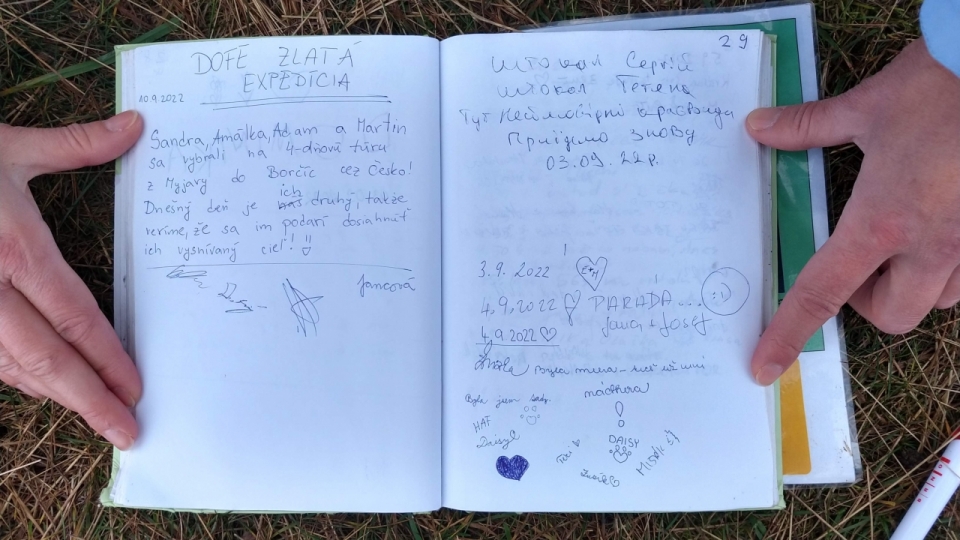 DOFE ZLATÁ
EXPEDÍCIA
10.9.2022
Sandra, Amálka, Adam a Martin
sa vybrali na 4-dňovú túru
z Myjavy do Borčíc cez Česko!
Dnešný deň je ich druhý, takže
veríme, že sa im podarí dosiahnuť
ich vysnívaný cieľ!
Jancová
29
Штокал Сергій
Штокал Тетяна
Тут неймовірні краєвиди
Приїдемо знову
03.09.22р.
3.9.2022
4.9.2022 PARÁDA....
Jana + Josef
4.9.2022
nádhera
Byla jsem tady.
HAF
Daisy
DAISY